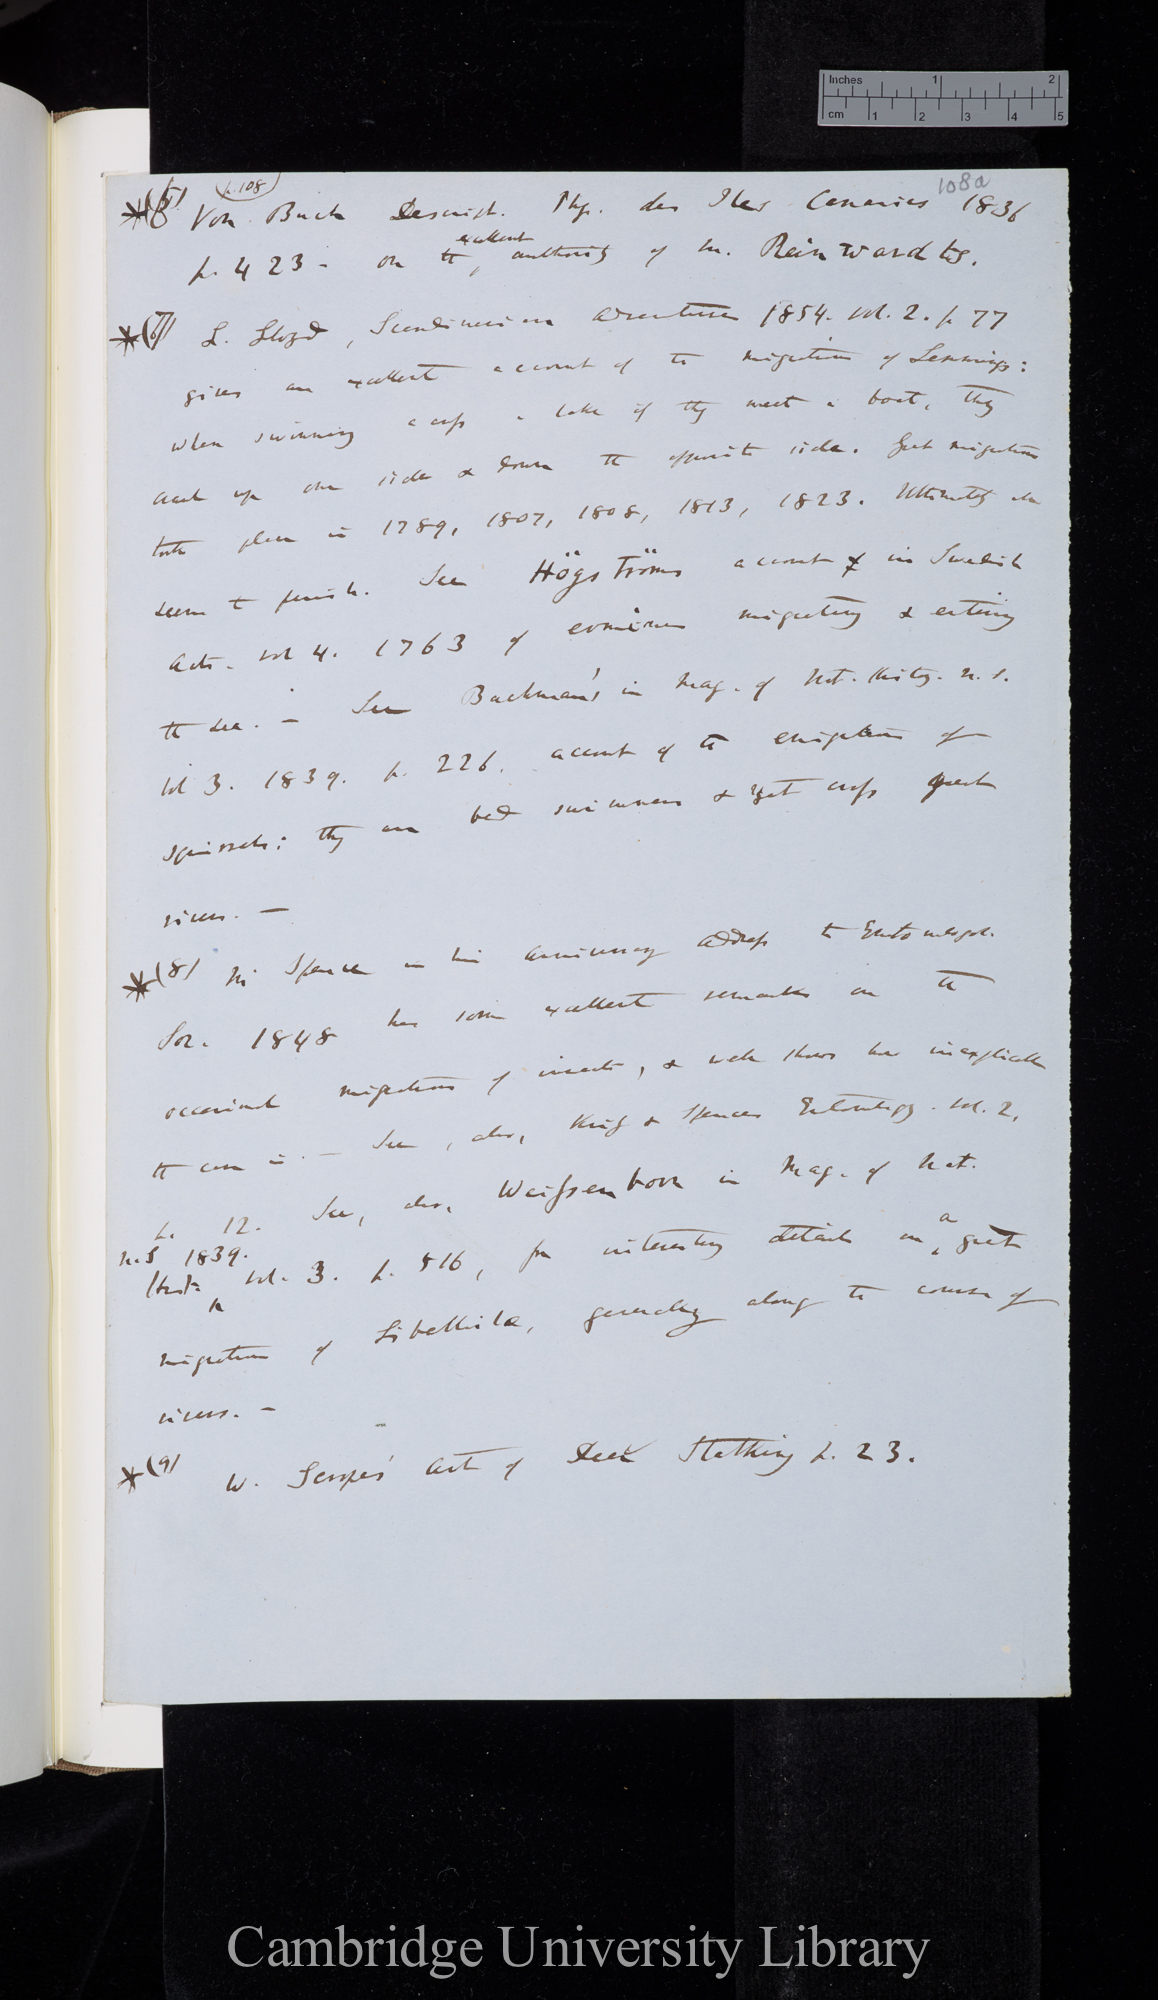 Inches 1 2
cm 1 2 3 4 5
108a
(p. 108)
*(5) Von Buch Descript. Phy. des Iles Canaries 1836
excellent
p. 423 - on the authority of M. Reinwardts.
*(7) L. Lloyd, Scandinavian Adventures 1854. vol. 2. p 77
gives an excellent account of the migration of Lemmings:
when swimming across a lake if they meet a boat, they
crawl up one side & down the opposite side. Great migrations
took place in 1789, 1807, 1808, 1813, 1823. Ultimately all
seem to perish. See Högströms account in Swedish
Acts. vol 4. 1763 of ermines migrating & entering
the sea. — See Bachman's in Mag. of Nat. History. N. S.
vol 3. 1839. p. 226. account of the emigration of
squirrels: they are bad swimmers & yet cross great
rivers. —
*(8) Mr Spence in his anniversary address to Entomolog.
Soc. 1848 has some excellent remarks on the
occasional migrations of insects, & well shows how inexplicable
the case is. — See, also, Kirby & Spences Entomology. vol. 2,
p. 12. See, also, Weissenborn in Mag. of Nat.
N.S 1839.
Hist. vol. 3. p. 516, for interesting details on a great
migration of Libellula, generally along the course of
rivers. —
*(9) W. Scrope's Art of Deer Stalking p. 23.
Cambridge University Library